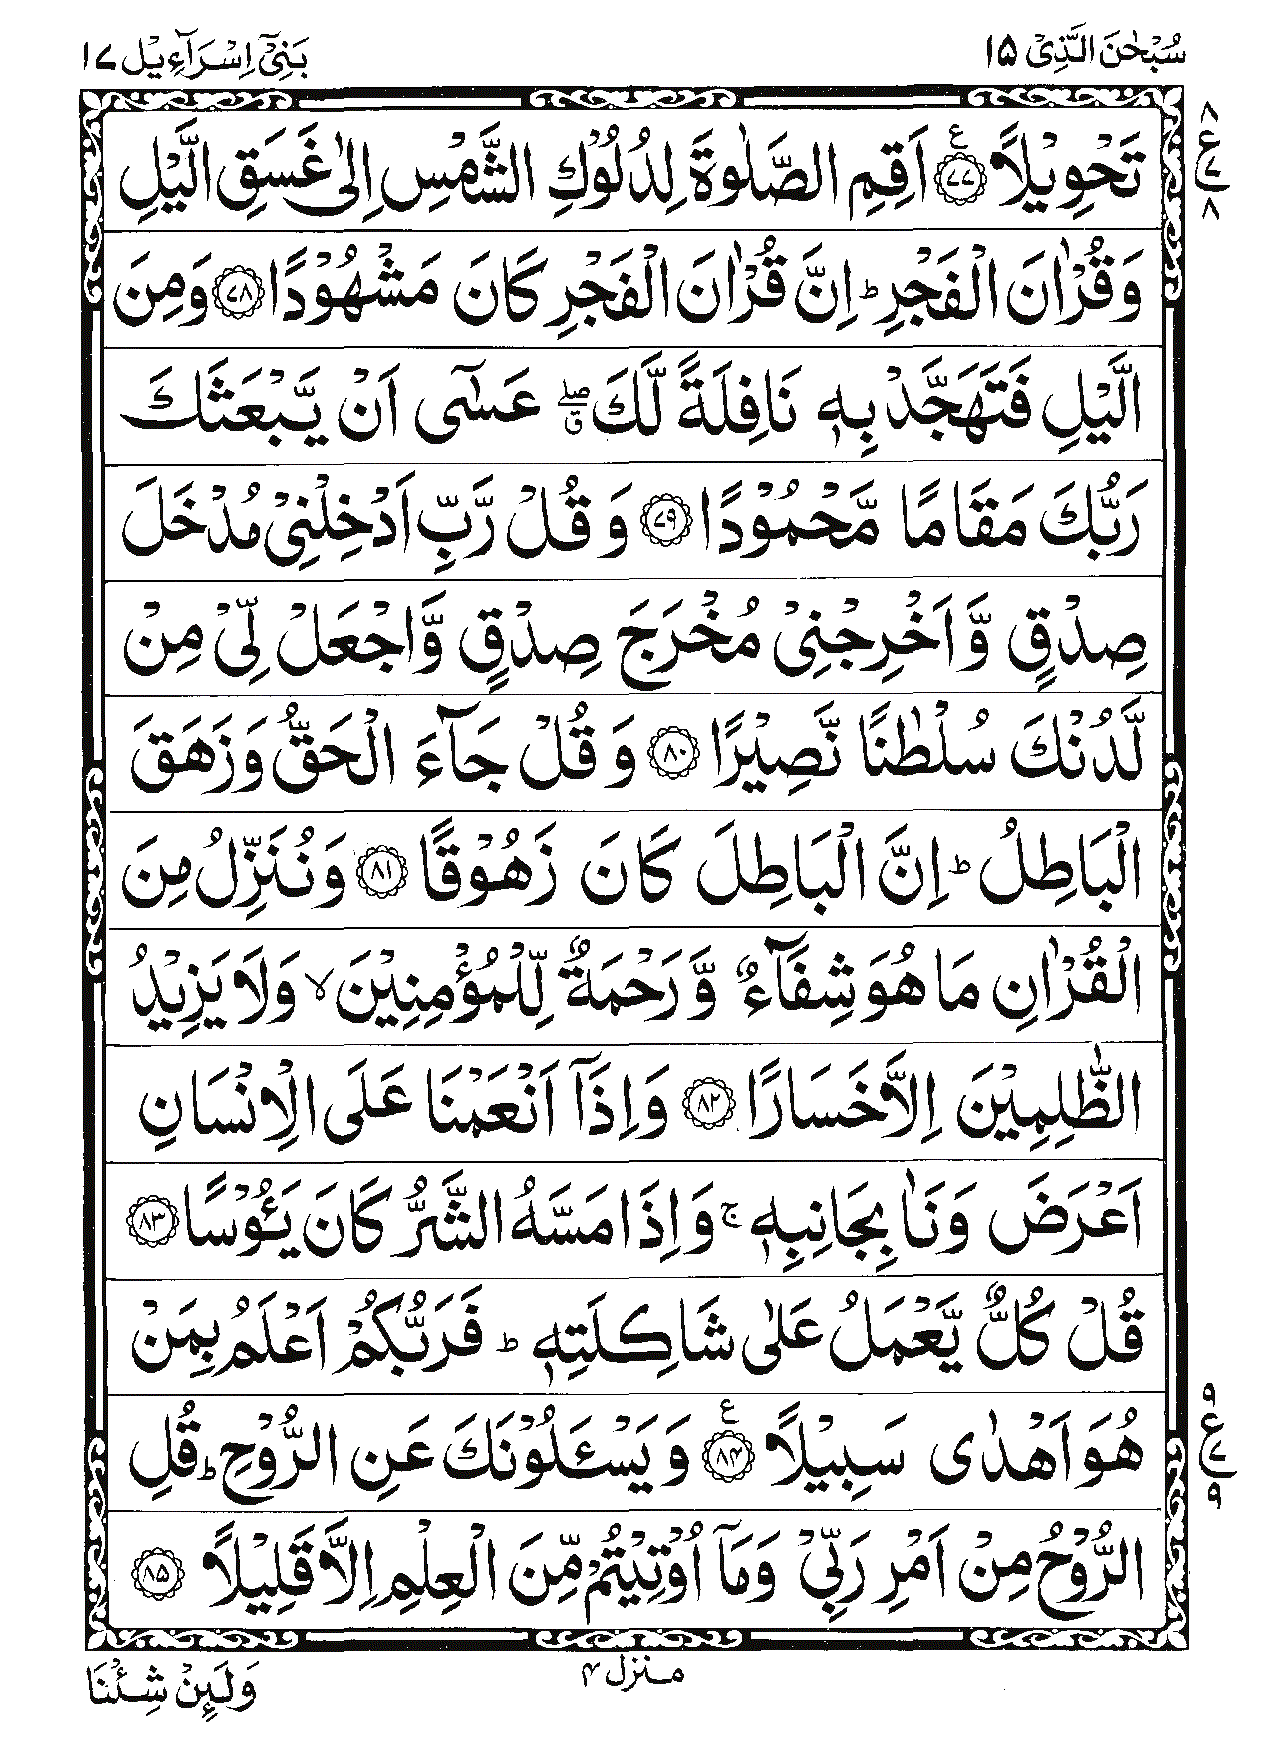 سُبْحٰنَ الَّذِیْۤ ۱۵
بَنِیْۤ اِسْرَآءِیْل ۱۷
۸
ع
۷
۸
تَحْوِیْلًا ﴿۷۷﴾ ع اَقِمِ الصَّلٰوةَ لِدُلُوْكِ الشَّمْسِ اِلٰی غَسَقِ الَّیْلِ
وَ قُرْاٰنَ الْفَجْرِ ؕ اِنَّ قُرْاٰنَ الْفَجْرِ كَانَ مَشْهُوْدًا ﴿۷۸﴾ وَ مِنَ
الَّیْلِ فَتَهَجَّدْ بِهٖ نَافِلَةً لَّكَ ۖۗ عَسٰۤی اَنْ یَّبْعَثَكَ
رَبُّكَ مَقَامًا مَّحْمُوْدًا ﴿۷۹﴾ وَ قُلْ رَّبِّ اَدْخِلْنِیْ مُدْخَلَ
صِدْقٍ وَّ اَخْرِجْنِیْ مُخْرَجَ صِدْقٍ وَّ اجْعَلْ لِّیْ مِنْ
لَّدُنْكَ سُلْطٰنًا نَّصِیْرًا ﴿۸۰﴾ وَ قُلْ جَآءَ الْحَقُّ وَ زَهَقَ
الْبَاطِلُ ؕ اِنَّ الْبَاطِلَ كَانَ زَهُوْقًا ﴿۸۱﴾ وَ نُنَزِّلُ مِنَ
الْقُرْاٰنِ مَا هُوَ شِفَآءٌ وَّ رَحْمَةٌ لِّلْمُؤْمِنِیْنَ ۙ وَ لَا یَزِیْدُ
الظّٰلِمِیْنَ اِلَّا خَسَارًا ﴿۸۲﴾ وَ اِذَاۤ اَنْعَمْنَا عَلَی الْاِنْسَانِ
اَعْرَضَ وَ نَاٰ بِجَانِبِهٖ ۚ وَ اِذَا مَسَّهُ الشَّرُّ كَانَ یَـُٔوْسًا ﴿۸۳﴾
قُلْ كُلٌّ یَّعْمَلُ عَلٰی شَاكِلَتِهٖ ؕ فَرَبُّكُمْ اَعْلَمُ بِمَنْ
هُوَ اَهْدٰی سَبِیْلًا ﴿۸۴﴾ ع وَ یَسْـَٔلُوْنَكَ عَنِ الرُّوْحِ ؕ قُلِ
۹
ع
۷
۹
الرُّوْحُ مِنْ اَمْرِ رَبِّیْ وَ مَاۤ اُوْتِیْتُمْ مِّنَ الْعِلْمِ اِلَّا قَلِیْلًا ﴿۸۵﴾
منزل ۴
وَ لَىِٕنْ شِئْنَا